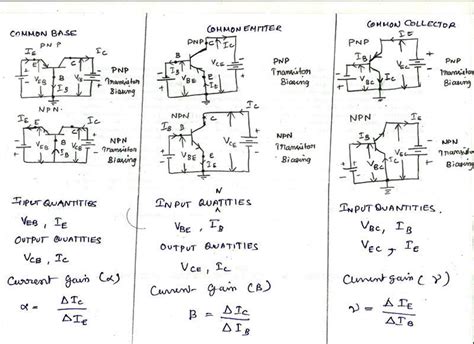 COMMON BASE
PNP
I_E
I_C
E
C
B
V_EB
I_B
V_CB
PNP
Transistor
Biasing
NPN
I_E
I_C
E
C
B
V_EB
I_B
V_CB
NPN
Transistor
Biasing
INPUT QUANTITIES
V_EB, I_E
OUTPUT QUANTITIES
V_CB, I_C
Current gain (α)
α = ΔI_C / ΔI_E
COMMON EMITTER
PNP
C
I_C
B
I_B
V_CE
V_BE
E
I_E
PNP
Transistor
Biasing
NPN
C
I_C
I_B
B
V_CE
V_BE
E
I_E
NPN
Transistor
Biasing
INPUT QUATITIES
N
V_BE, I_B
OUTPUT QUATITIES
V_CE, I_C
Current gain (β)
β = ΔI_C / ΔI_B
COMMON COLLECTOR
PNP
E
I_E
I_B
B
V_EC
V_BC
C
I_C
PNP
Transistor
Biasing
NPN
E
I_E
I_B
V_EC
V_BC
I_C
NPN
Transistor
Biasing
INPUT QUANTITIES.
V_BC, I_B
OUTPUT QUANTITIES
V_EC, I_E
Current gain (γ)
γ = ΔI_E / ΔI_B